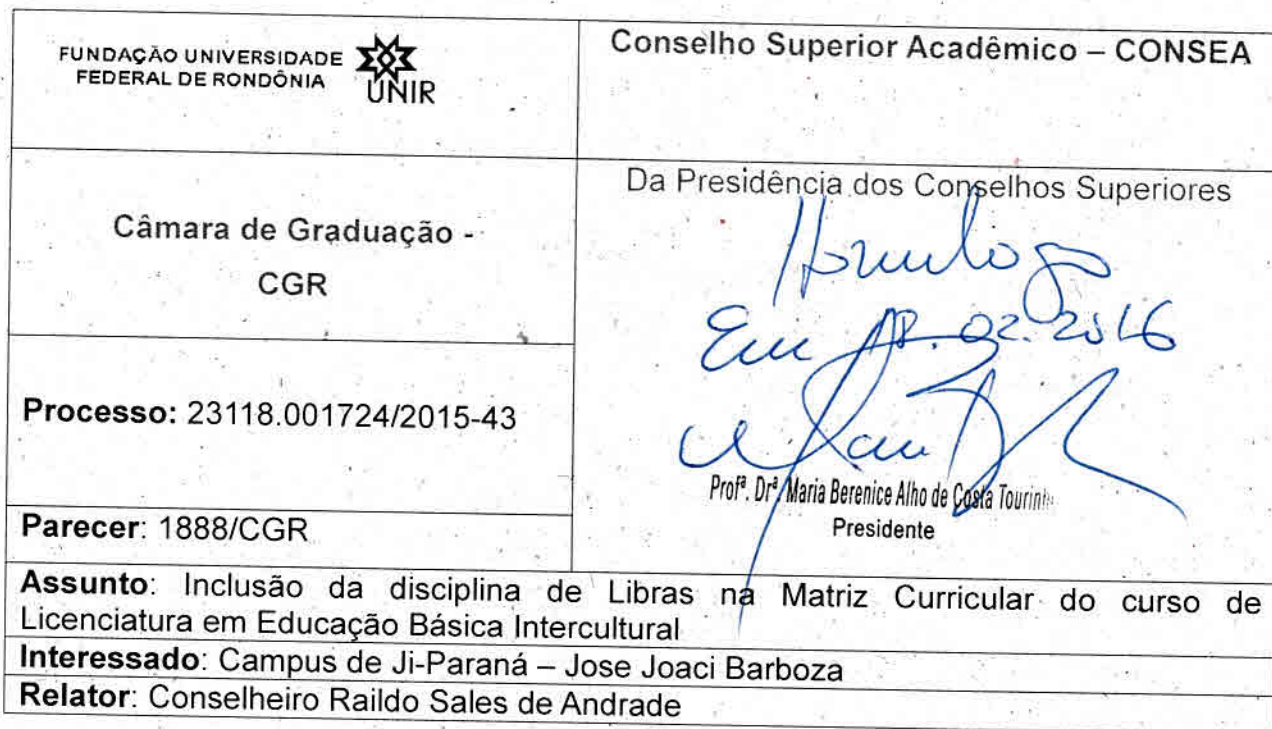 FUNDAÇÃO UNIVERSIDADE
FEDERAL DE RONDÔNIA
UNIR
Conselho Superior Acadêmico – CONSEA
Câmara de Graduação -
CGR
Da Presidência dos Conselhos Superiores
Homologo
Em 18.02.2016
Profª. Drª. Maria Berenice Alho da Costa Tourinho
Presidente
Processo: 23118.001724/2015-43
Parecer: 1888/CGR
Assunto: Inclusão da disciplina de Libras na Matriz Curricular do curso de
Licenciatura em Educação Básica Intercultural
Interessado: Campus de Ji-Paraná – Jose Joaci Barboza
Relator: Conselheiro Raildo Sales de Andrade